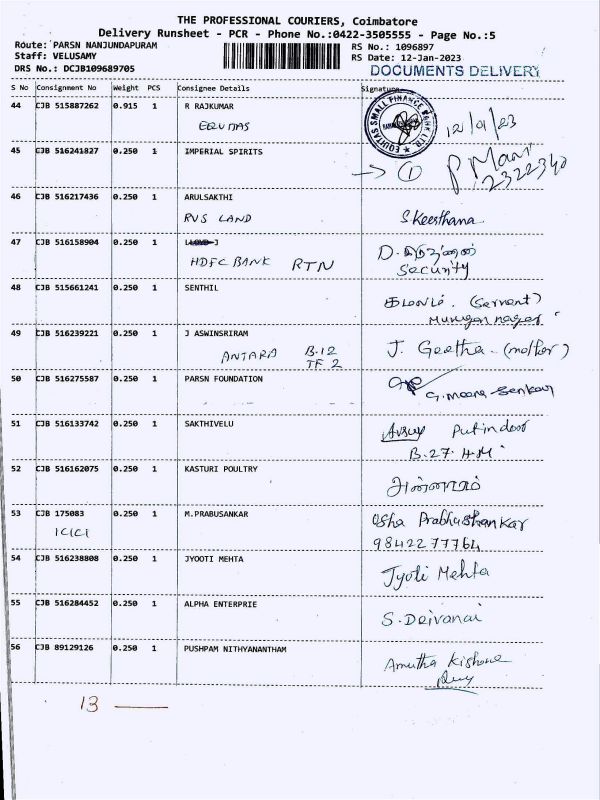 THE PROFESSIONAL COURIERS, Coimbatore
Delivery Runsheet - PCR - Phone No.:0422-3505555 - Page No.:5
Route: PARSN NANJUNDAPURAM
RS No.: 1096897
Staff: VELUSAMY
RS Date: 12-Jan-2023
DRS No.: DCJB109689705
DOCUMENTS DELIVERY
S No Consignment No Weight PCS Consignee Details Signature
44 CJB 515887262 0.915 1 R RAJKUMAR
EQUITAS
EQUITAS SMALL FINANCE BANK LTD.
12/01/23
45 CJB 516241827 0.250 1 IMPERIAL SPIRITS
→ 1 P Mani
2322340
46 CJB 516217436 0.250 1 ARULSAKTHI
RVS LAND
S Keesthana
47 CJB 516158904 0.250 1
HDFC BANK RTN
D.
Security
48 CJB 515661241 0.250 1 SENTHIL
(Servent)
Murugan nagar
49 CJB 516239221 0.250 1 J ASWINSRIRAM
ANTARA B-12
TF 2
J. Geetha (mother)
50 CJB 516275587 0.250 1 PARSN FOUNDATION
51 CJB 516133742 0.250 1 SAKTHIVELU
Put in door
B.27. H.M
52 CJB 516162075 0.250 1 KASTURI POULTRY
53 CJB 175083 0.250 1 M.PRABUSANKAR
ICICI
Usha Prabhushankar
9842277764
54 CJB 516238808 0.250 1 JYOOTI MEHTA
Jyoti Mehta
55 CJB 516284452 0.250 1 ALPHA ENTERPRIE
S. Deivanai
56 CJB 89129126 0.250 1 PUSHPAM NITHYANANTHAM
Amutha Kishore
13